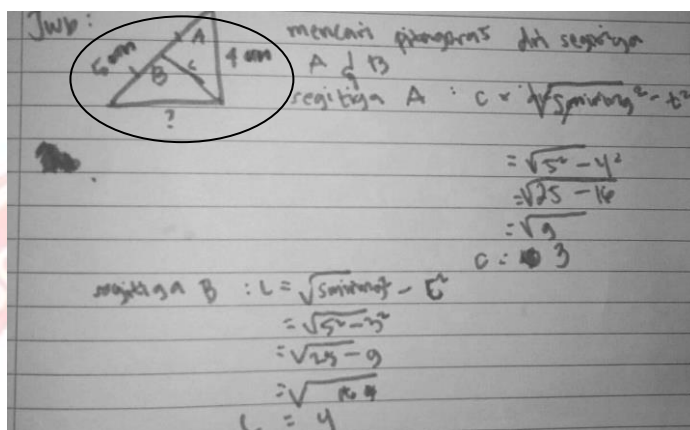 Jwb :
5 cm
A
B
C
4 cm
?
mencari pitagoras dri segitiga
A & B
segitiga A : c = √smiring² - t²
= √5² - 4²
= √25 - 16
= √9
c = 3
segitiga B : L = √smiring² - t²
= √5² - 3²
= √25 - 9
= √16
L = 4